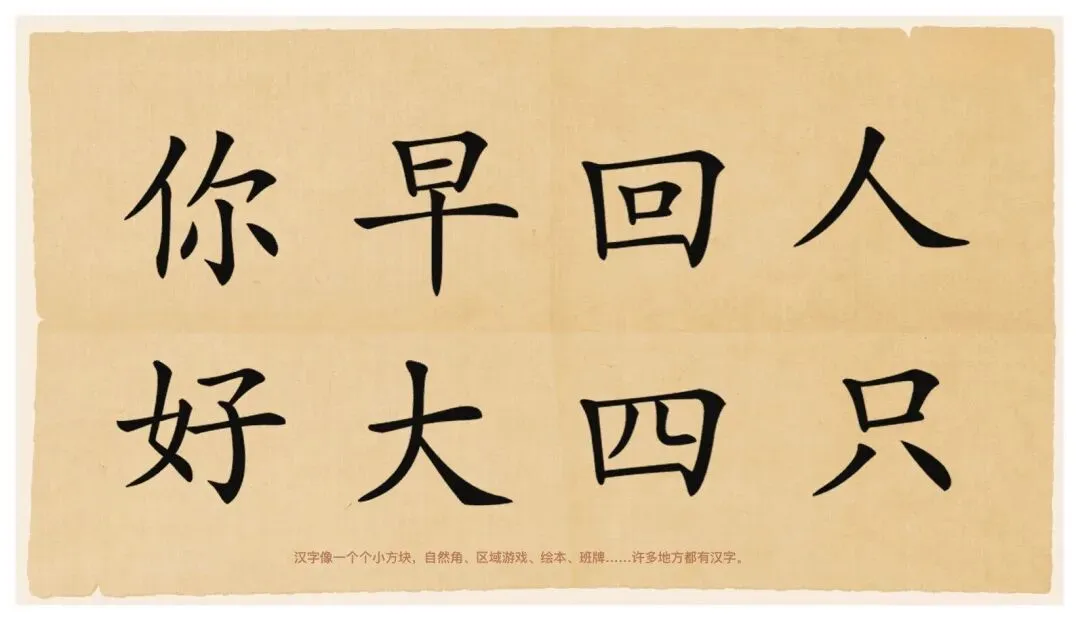 你早回人
好大四只
汉字像一个个小方块，自然角、区域游戏、绘本、班牌……许多地方都有汉字。